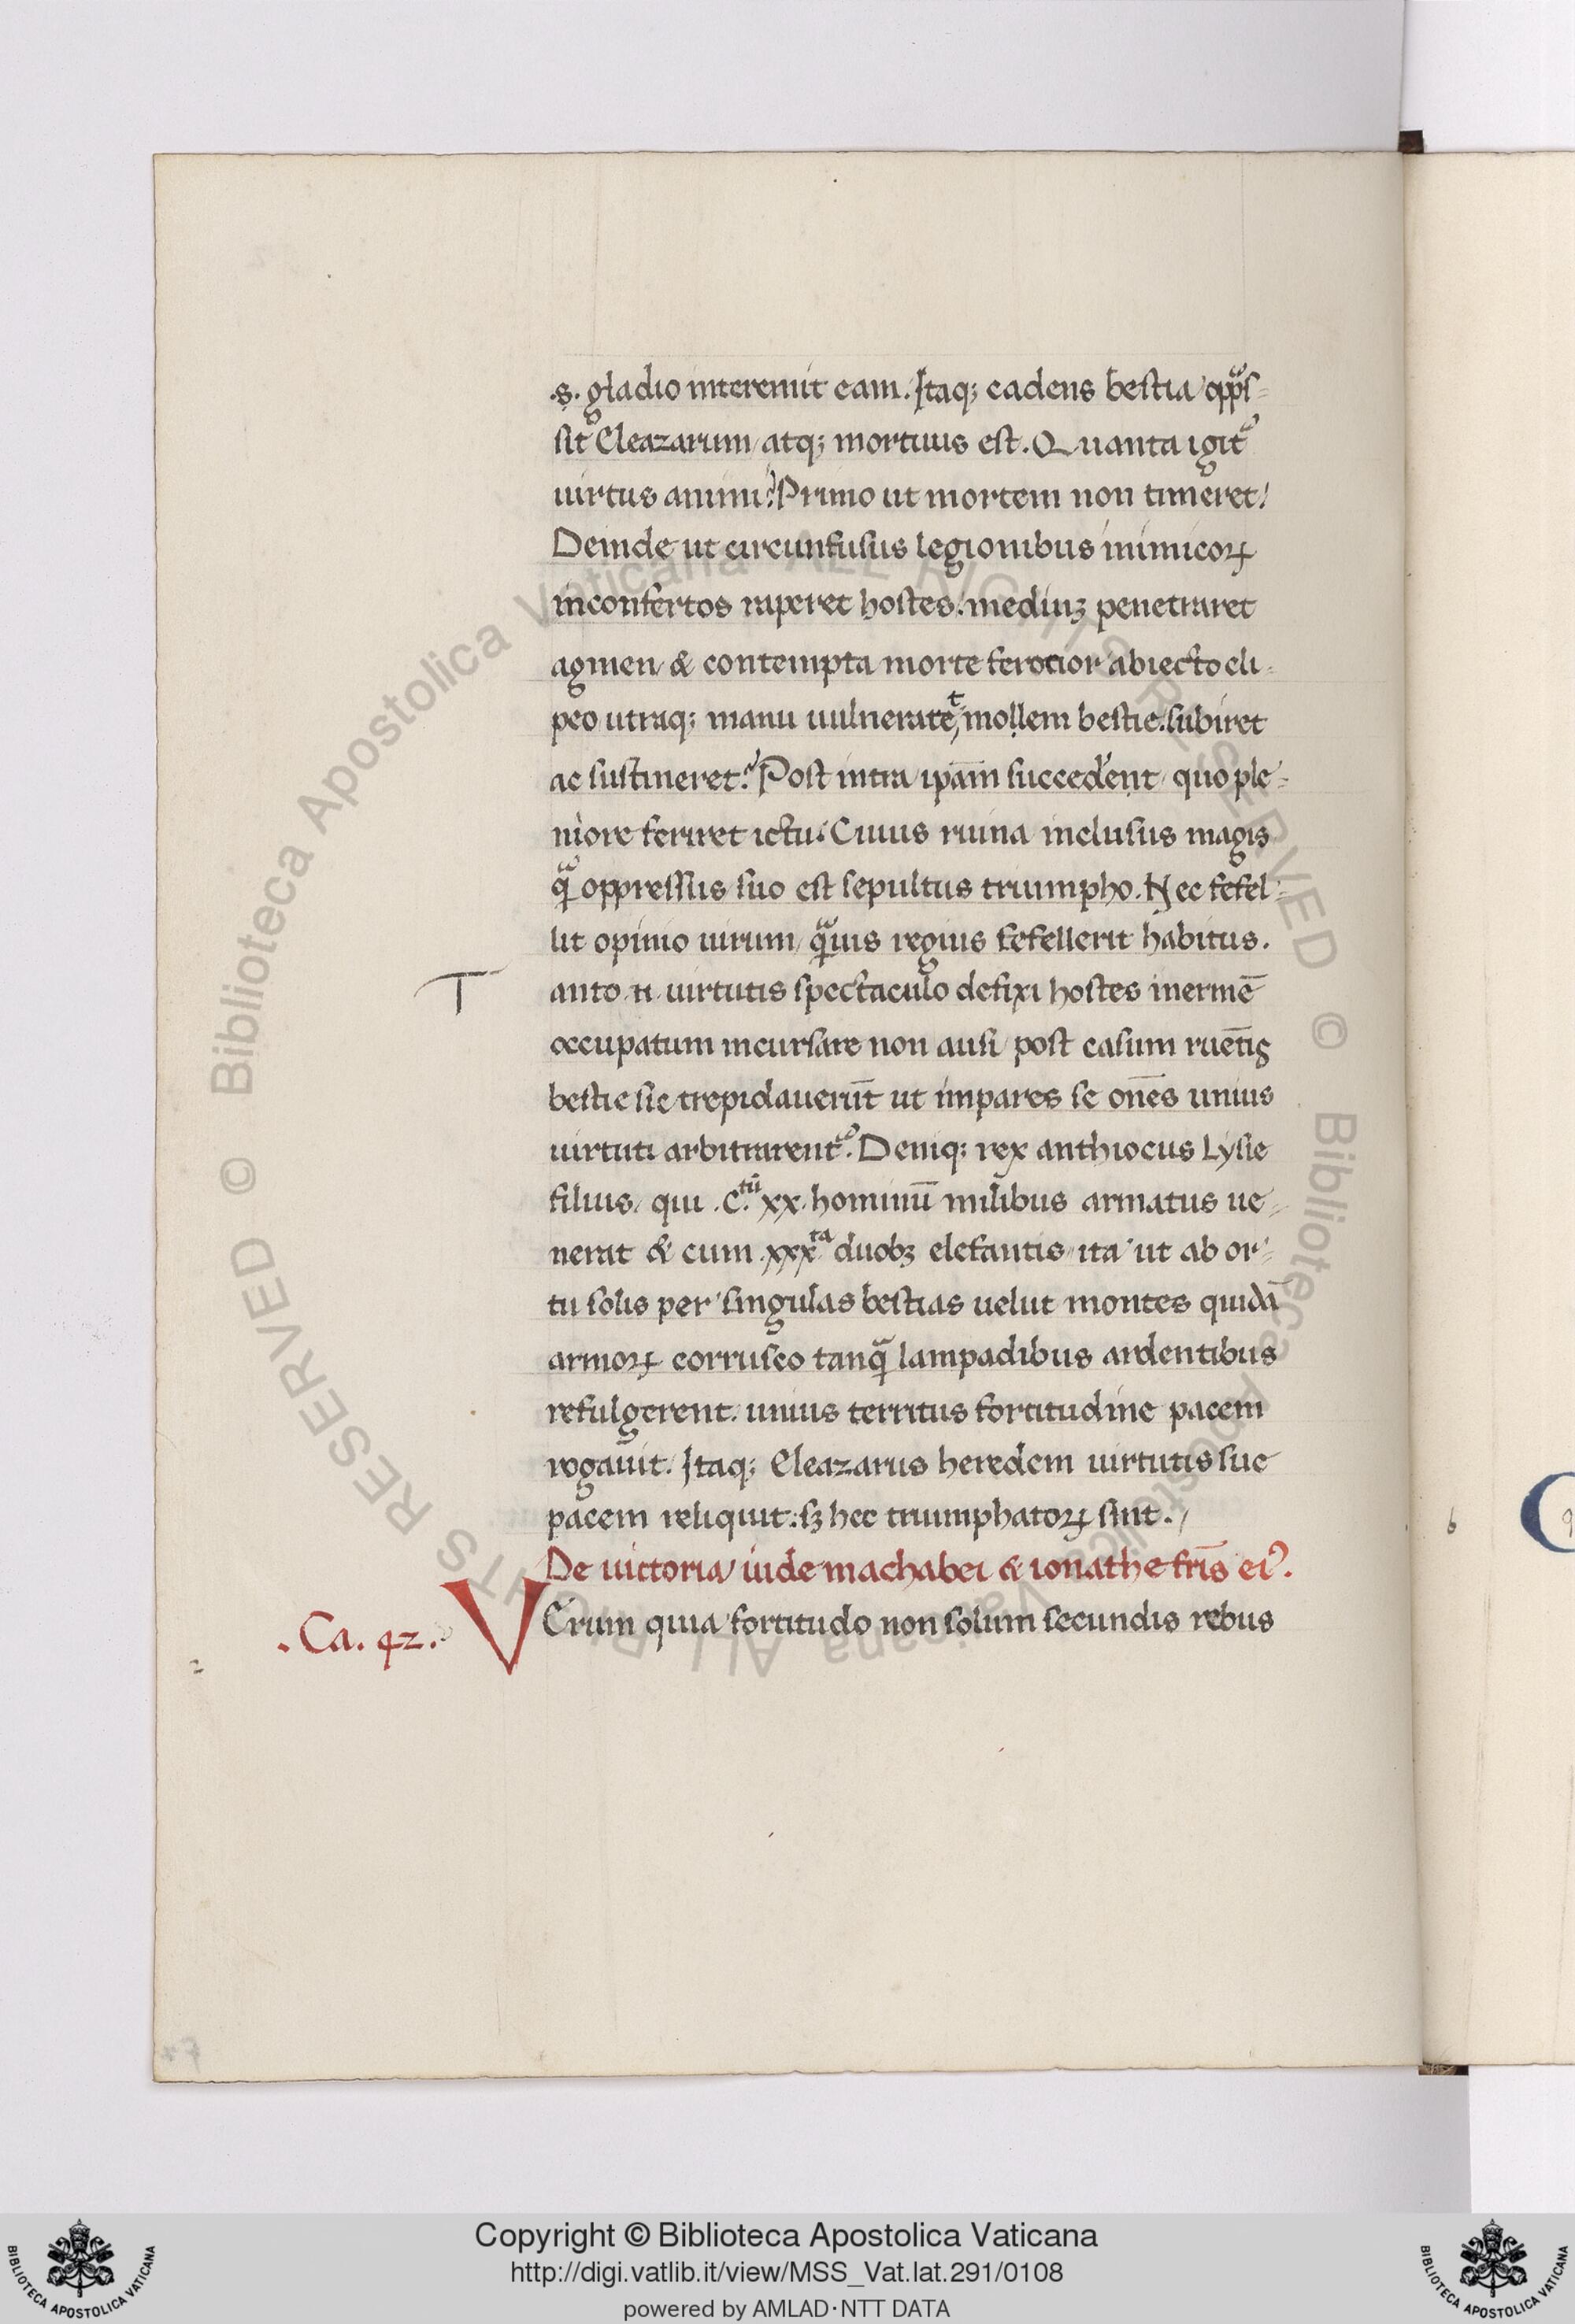 .s. gladio interemit eam. Itaq; cadens bestia opp̃s-
sit Eleazarum atq; mortuus est. Quanta igit᷑
uirtus animi? Primo ut mortem non timeret!
Deinde ut circunfusus legionibus inimicoꝝ
inconfertos raperet hostes. mediuꝫ penetraret
agmen & contempta morte ferocior abiecto cli-
peo utraq; manu uulneratẽ mollem bestie. subiret
ac sustineret. Post intra ip̃am succederent quo ple-
niore feriret ictu. Cuius ruina inclusus magis
qͣ oppressus suo est sepultus triumpho. Nec fefel-
lit opinio uirum qͣuis regius fefellerit habitus.
T anto .n. uirtutis spectaculo defixi hostes inermẽ
occupatum incursare non ausi post casum ruẽtis
bestie sic trepidauerũt ut impares se oñes unius
uirtuti arbitrarent᷑. Deniq; rex anthiocus Lysie
filius, qui .C.tũ xx. hominũ milibus armatus ue-
nerat & cum .xxxta duobꝫ elefantis ita ut ab or-
tu solis per singulas bestias uelut montes quidã
armoꝝ corrusco tanqͣ lampadibus ardentibus
refulgerent. unius territus fortitudine pacem
rogauit. Itaq; Eleazarus heredem uirtutis sue
pacem reliquit. sꝫ hec triumphatoꝝ sint.
De uictoria iude machabei & ionathe fr̃is eiꝰ.
.Ca. 42. VErum quia fortitudo non solum secundis rebus
6
© Biblioteca Apostolica Vaticana ALL RIGHTS RESERVED © Biblioteca Apostolica Vaticana ALL RIGHTS RESERVED
BIBLIOTECA APOSTOLICA VATICANA
Copyright © Biblioteca Apostolica Vaticana
http://digi.vatlib.it/view/MSS_Vat.lat.291/0108
powered by AMLAD·NTT DATA
BIBLIOTECA APOSTOLICA VATICANA